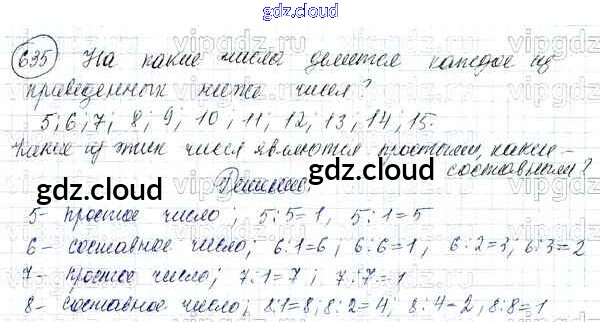 gdz.cloud
635 На какие числа делится каждое из
приведенных ниже чисел?
5; 6; 7; 8; 9; 10; 11; 12; 13; 14; 15.
Какие из этих чисел являются простыми, какие -
составными?
gdz.cloud gdz.cloud
Решение.
5- простое число; 5:5=1, 5:1=5
6- составное число; 6:1=6; 6:6=1; 6:2=3; 6:3=2
7- простое число; 7:1=7; 7:7=1
8- составное число; 8:1=8; 8:2=4; 8:4=2, 8:8=1